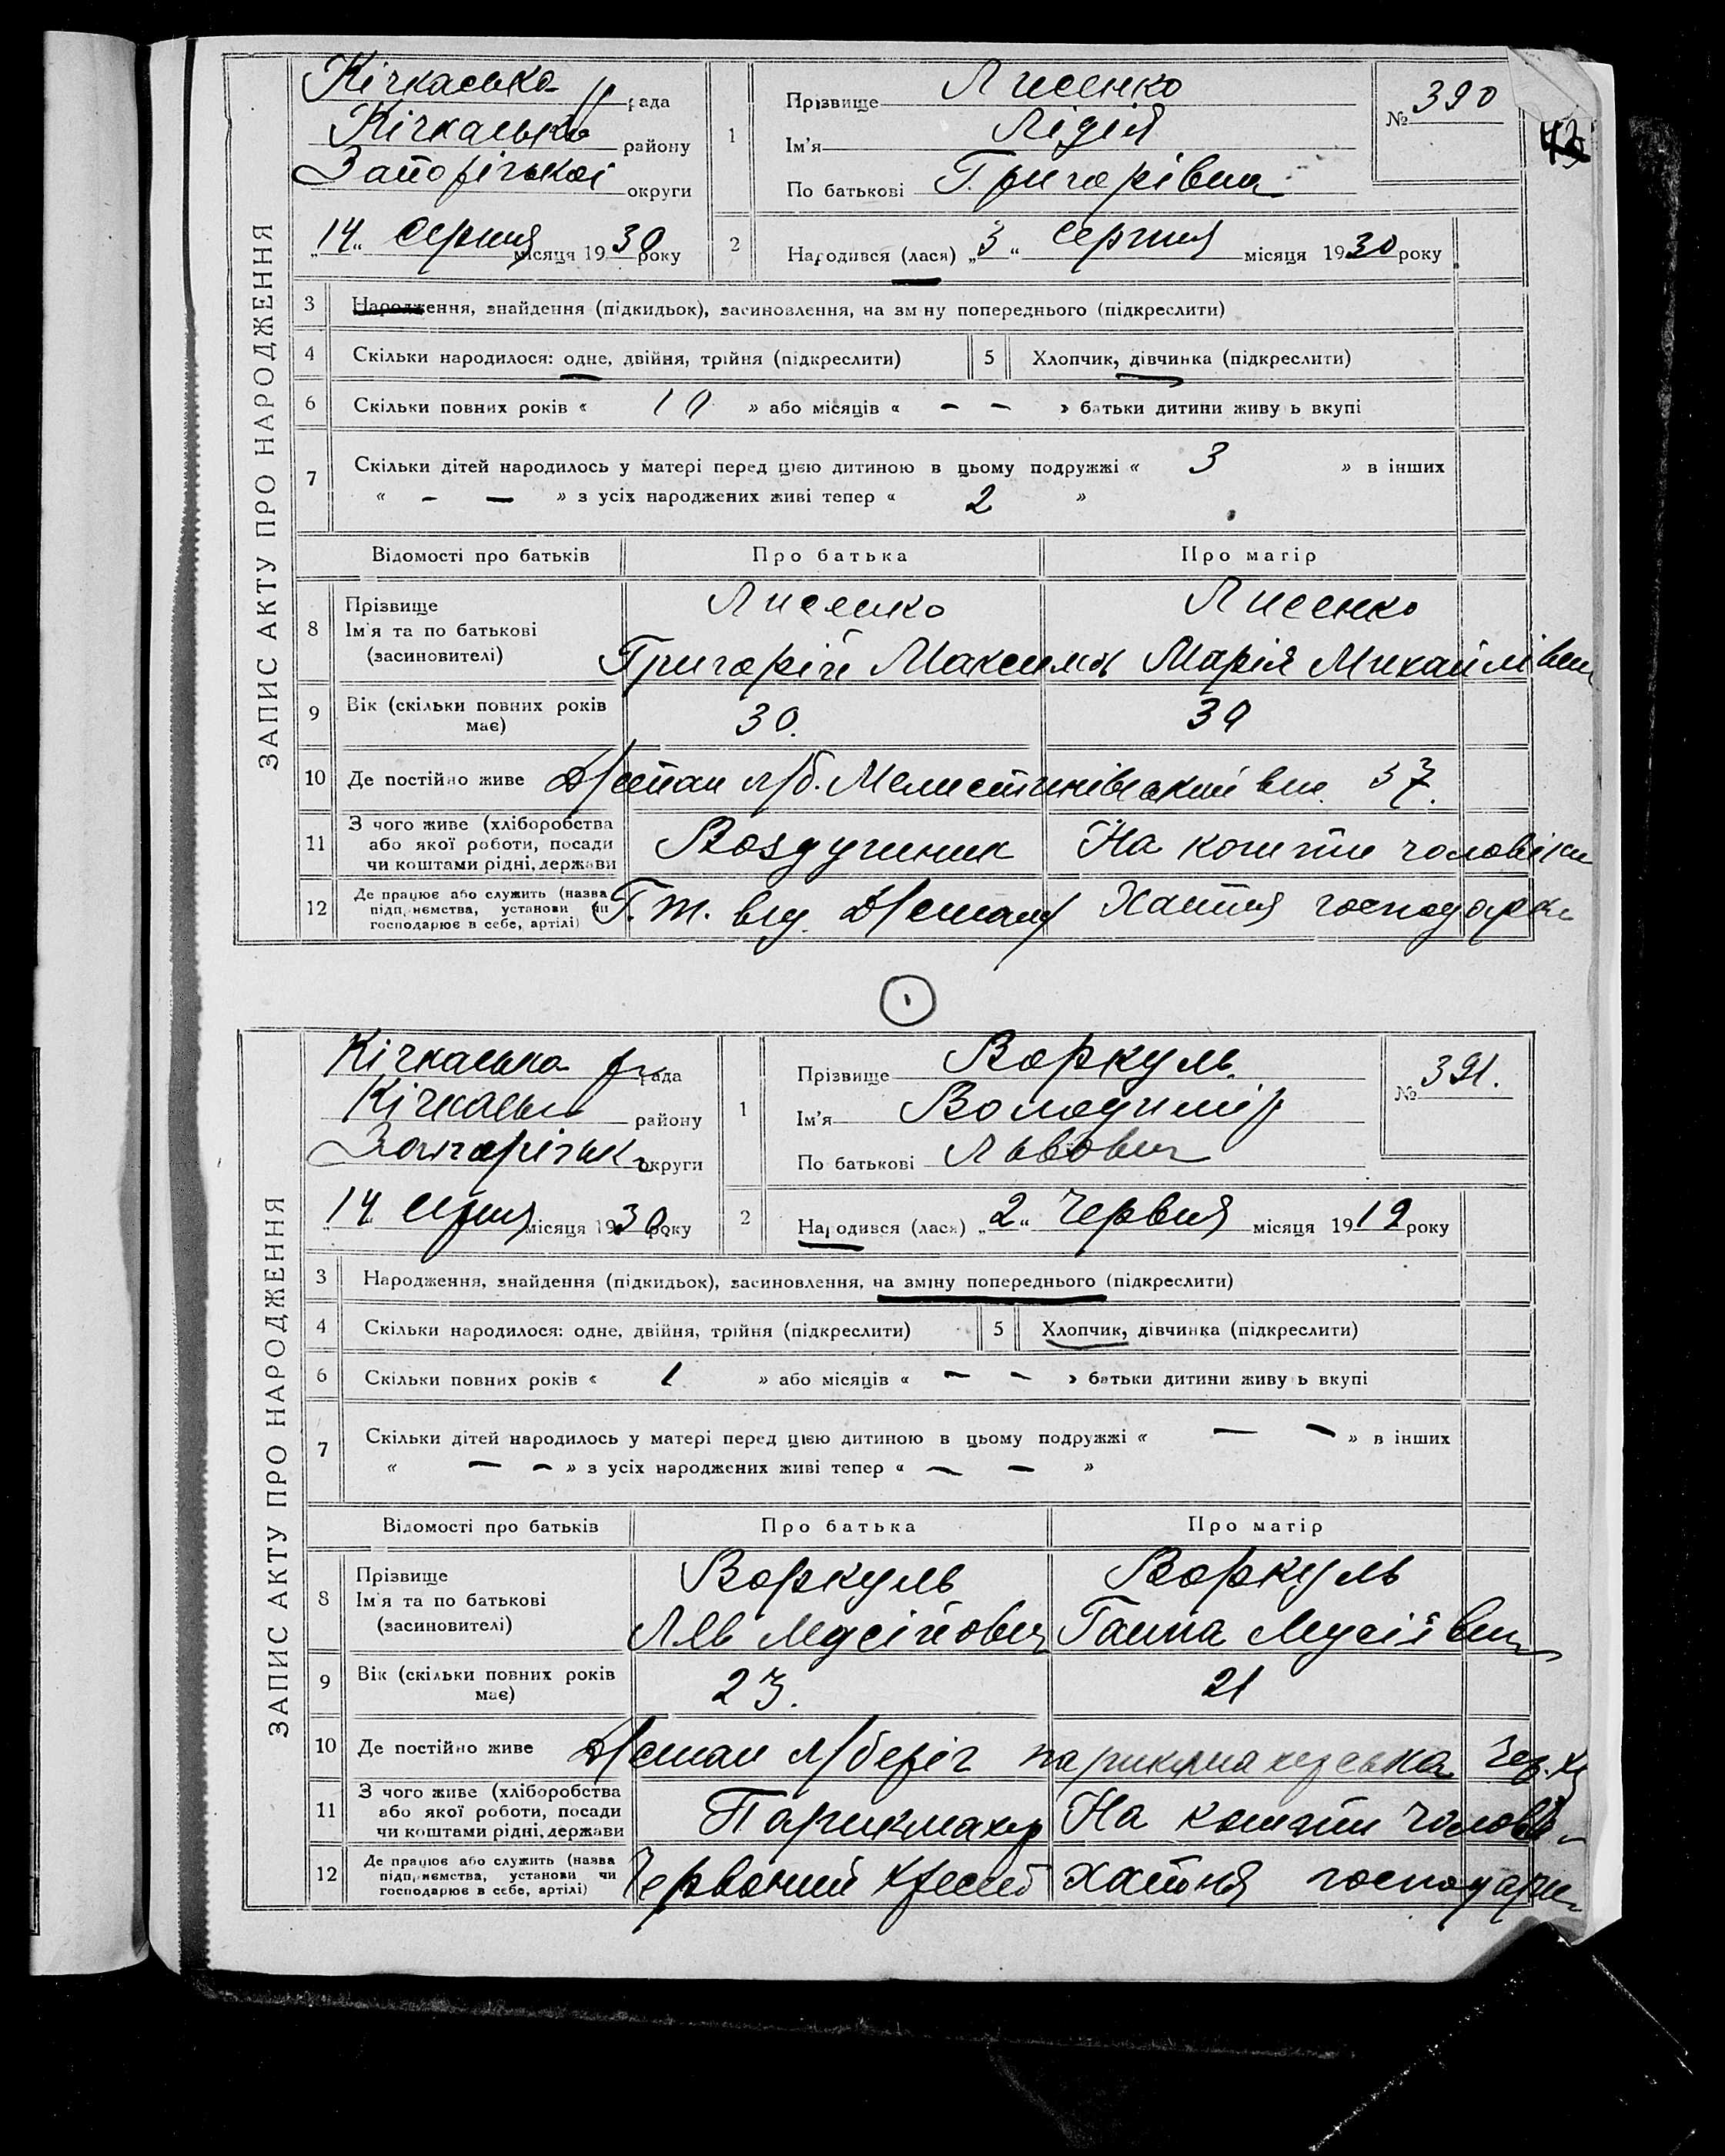 ЗАПИС АКТУ ПРО НАРОДЖЕННЯ
Кічкаська рада
Кічкаськ району
Запорізької округи
„14“ серпня місяця 1930 року
1
Прізвище Лисенко
Ім'я Лідія
По батькові Григорівна
№ 390
2 Народився (лася) „3“ серпня місяця 1930 року
3 Народження, знайдення (підкидьок), засиновлення, на зміну попереднього (підкреслити)
4 Скільки народилося: одне, двійня, трійня (підкреслити)
5 Хлопчик, дівчинка (підкреслити)
6 Скільки повних років « 10 » або місяців « – – » батьки дитини живуть вкупі
7 Скільки дітей народилось у матері перед цією дитиною в цьому подружжі « 3 » в інших
« – — » з усіх народжених живі тепер « 2 »
Відомості про батьків Про батька Про матір
8 Прізвище
Ім'я та по батькові
(засиновителі)
Лисенко
Григорій Максим
Лисенко
Марія Михайлівна
9 Вік (скільки повних років має) 30. 30
10 Де постійно живе Д/стан л/б. 37.
11 З чого живе (хліборобства
або якої роботи, посади
чи коштами рідні, держави
Воздушник На кошти чоловіка
12 Де працює або служить (назва
підприємства, установи чи
господарює в себе, артілі)
Г.т. від. Д/стану Хатня господарка
Кічкаська рада
Кічкаськ району
Запоріжськ округи
„14“ серпня місяця 1930 року
1
Прізвище Воркуль
Ім'я Володимір
По батькові Львович
№ 391.
2 Народився (лася) „2“ Червня місяця 1919 року
3 Народження, знайдення (підкидьок), засиновлення, на зміну попереднього (підкреслити)
4 Скільки народилося: одне, двійня, трійня (підкреслити)
5 Хлопчик, дівчинка (підкреслити)
6 Скільки повних років « 1 » або місяців « – – » батьки дитини живуть вкупі
7 Скільки дітей народилось у матері перед цією дитиною в цьому подружжі « — – » в інших
« — – » з усіх народжених живі тепер « – – »
Відомості про батьків Про батька Про матір
8 Прізвище
Ім'я та по батькові
(засиновителі)
Воркуль
Лев Мусійович
Воркуль
Ганна Мусіївна
9 Вік (скільки повних років має) 23. 21
10 Де постійно живе Д/стан л/беріг парикмахерська Чер. Хр
11 З чого живе (хліборобства
або якої роботи, посади
чи коштами рідні, держави
Парикмахер На кошти чоловіка
12 Де працює або служить (назва
підприємства, установи чи
господарює в себе, артілі)
Червоний хрест Хатня господарка
ЗАПИС АКТУ ПРО НАРОДЖЕННЯ